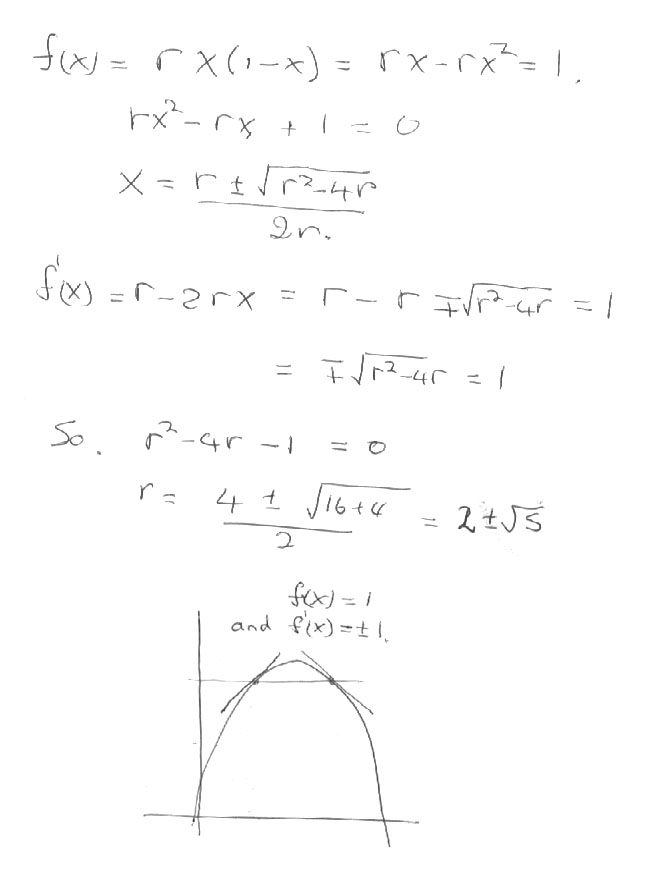 f(x) = r x(1-x) = rx-rx²= 1.
rx²- rx + 1 = 0
x = r ± √r²-4r
2r.
f'(x) = r-2rx = r - r ∓√r²-4r = 1
= ∓√r²-4r = 1
So. r²-4r -1 = 0
r = 4 ± √16+4 / 2 = 2±√5
f(x) = 1
and f'(x) = ±1.